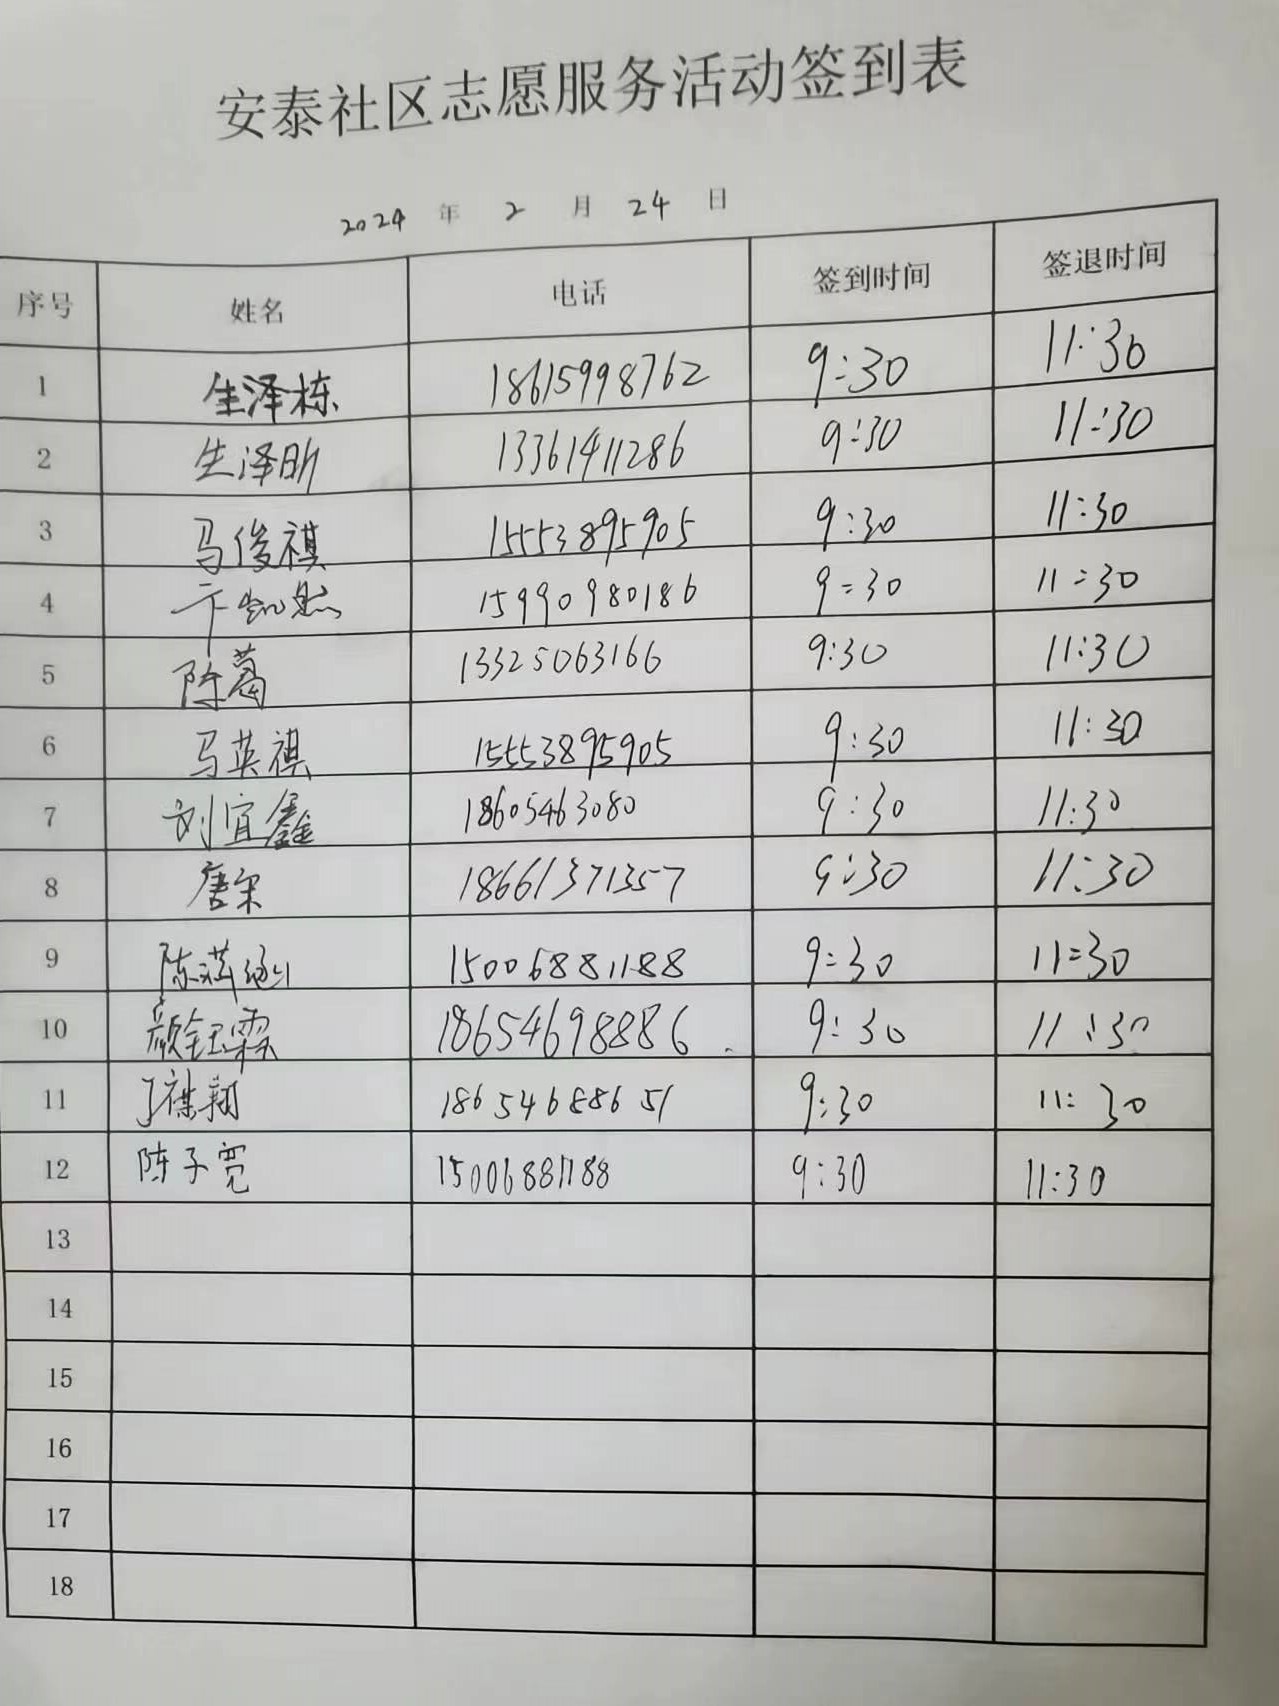 安泰社区志愿服务活动签到表
2024 年 2 月 24 日
序号 姓名 电话 签到时间 签退时间
1 生泽栋 18615998762 9:30 11:30
2 生泽昕 13361411286 9:30 11:30
3 马俊祺 15553895905 9:30 11:30
4 15990980186 9:30 11:30
5 陈葛 13325063166 9:30 11:30
6 马英祺 15553895905 9:30 11:30
7 刘宜鑫 18605463080 9:30 11:30
8 唐 18661371357 9:30 11:30
9 陈 15006881188 9:30 11:30
10 颜钰霖 18654698886 9:30 11:30
11 翔 18654688651 9:30 11:30
12 陈子霓 15006881188 9:30 11:30
13
14
15
16
17
18